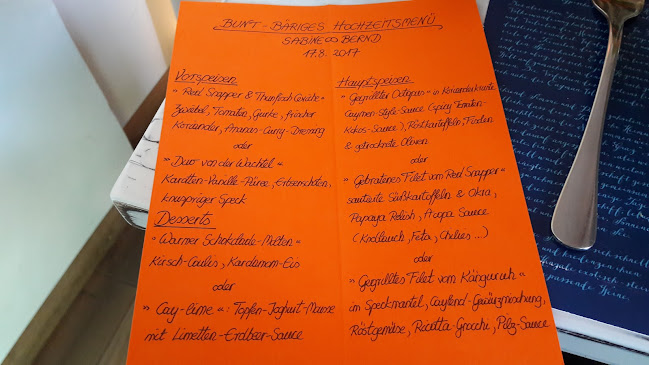 BUNT-BÄRIGES HOCHZEITSMENÜ
SABINE ∞ BERND
17.8.2017
Vorspeisen
"Red Snapper & Thunfisch Ceviche"
Zwiebel, Tomaten, Gurke, frischer
Koriander, Ananas-Curry-Dressing
oder
"Duo von der Wachtel"
Karotten-Vanille-Püree, Erbsenschoten,
knuspriger Speck
Desserts
"Warmer Schokolade-Melten"
Kirsch-Coulis, Kardamom-Eis
oder
"Cay-Lime": Topfen-Joghurt-Mousse
mit Limetten-Erdbeer-Sauce
Hauptspeisen
"Gegrillter Octopus" in Korianderkruste
Caymen-Style-Sauce (spicy Tomaten-
Kokos-Sauce), Röstkartoffeln, Fisolen
& getrocknete Oliven
oder
"Gebratenes Filet vom Red Snapper"
sautierte Süßkartoffeln & Okra,
Papaya Relish, Sauce
(Knoblauch, Feta, Chilies...)
oder
"Gegrilltes Filet vom Känguruh"
im Speckmantel, Gewürzmischung,
Röstgemüse, Ricotta-Gnocchi, Pilz-Sauce